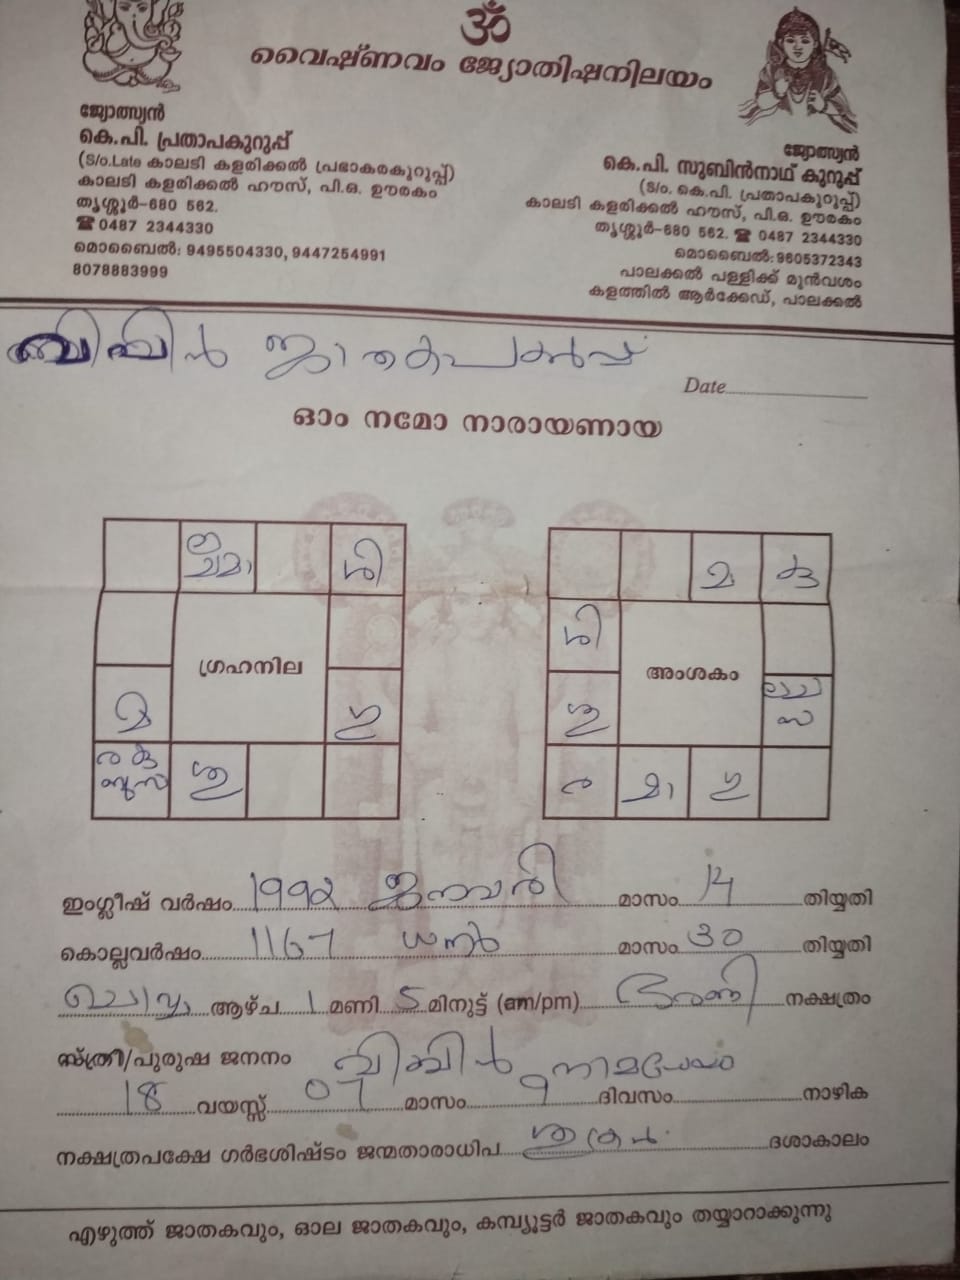 ॐ
വൈഷ്ണവം ജ്യോതിഷനിലയം
ജ്യോത്സ്യൻ
കെ.പി. പ്രതാപകുറുപ്പ്
(S/o.Late കാലടി കളരിക്കൽ പ്രഭാകരകുറുപ്പ്)
കാലടി കളരിക്കൽ ഹൗസ്, പി.ഒ. ഊരകം
തൃശ്ശൂർ-680 562.
☎ 0487 2344330
മൊബൈൽ: 9495504330, 9447254991
8078883999
ജ്യോത്സ്യൻ
കെ.പി. സുബിൻനാഥ് കുറുപ്പ്
(S/o. കെ.പി. പ്രതാപകുറുപ്പ്)
കാലടി കളരിക്കൽ ഹൗസ്, പി.ഒ. ഊരകം
തൃശ്ശൂർ-680 562. ☎ 0487 2344330
മൊബൈൽ: 9605372343
പാലക്കൽ പള്ളിക്ക് മുൻവശം
കളത്തിൽ ആർക്കേഡ്, പാലക്കൽ
ജാതകപകർപ്പ്
Date
ഓം നമോ നാരായണായ
ശി
ഗ്രഹനില
മ
ഗു
ര കു
ശു
മ കു
ശി
അംശകം
ശു
സ
ര മാ ഗു
ഇംഗ്ലീഷ് വർഷം 1992 ജനുവരി മാസം 14 തിയ്യതി
കൊല്ലവർഷം 1167 ധനു മാസം 30 തിയ്യതി
ചൊവ്വ ആഴ്ച 1 മണി 5 മിനുട്ട് (am/pm) ഭരണി നക്ഷത്രം
സ്ത്രീ/പുരുഷ ജനനം
18 വയസ്സ് 07 മാസം 9 ദിവസം നാഴിക
നക്ഷത്രപക്ഷേ ഗർഭശിഷ്ടം ജന്മതാരാധിപ ശുക്രൻ ദശാകാലം
എഴുത്ത് ജാതകവും, ഓല ജാതകവും, കമ്പ്യൂട്ടർ ജാതകവും തയ്യാറാക്കുന്നു